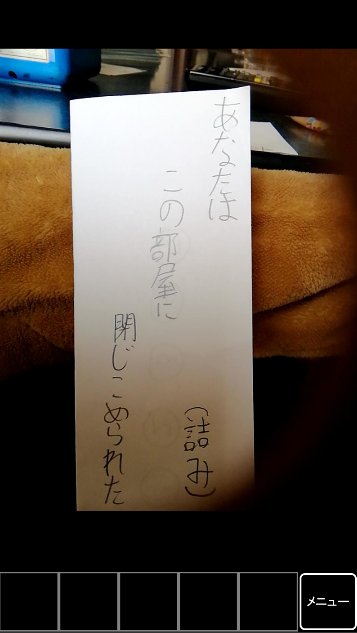 あなたは
この部屋に
閉じこめられた
(詰み)
メニュー